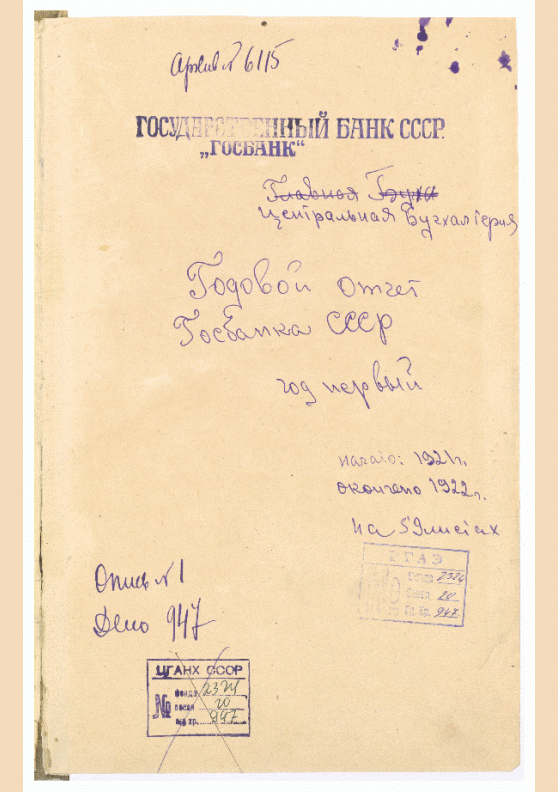 Архив № 6115
ГОСУДАРСТВЕННЫЙ БАНК СССР.
„ГОСБАНК“
Главная Бухг
Центральная Бухгалтерия
Годовой отчет
Госбанка СССР
год первый
начато: 1921 г.
окончено 1922 г.
на 59 листах
РГАЭ
Фонда 2324
Опись 20
Ед. Хр. 947
Опись № 1
Дело 947
ЦГАНХ СССР
Фонда 2324
№ описи 20
ед. хр. 947